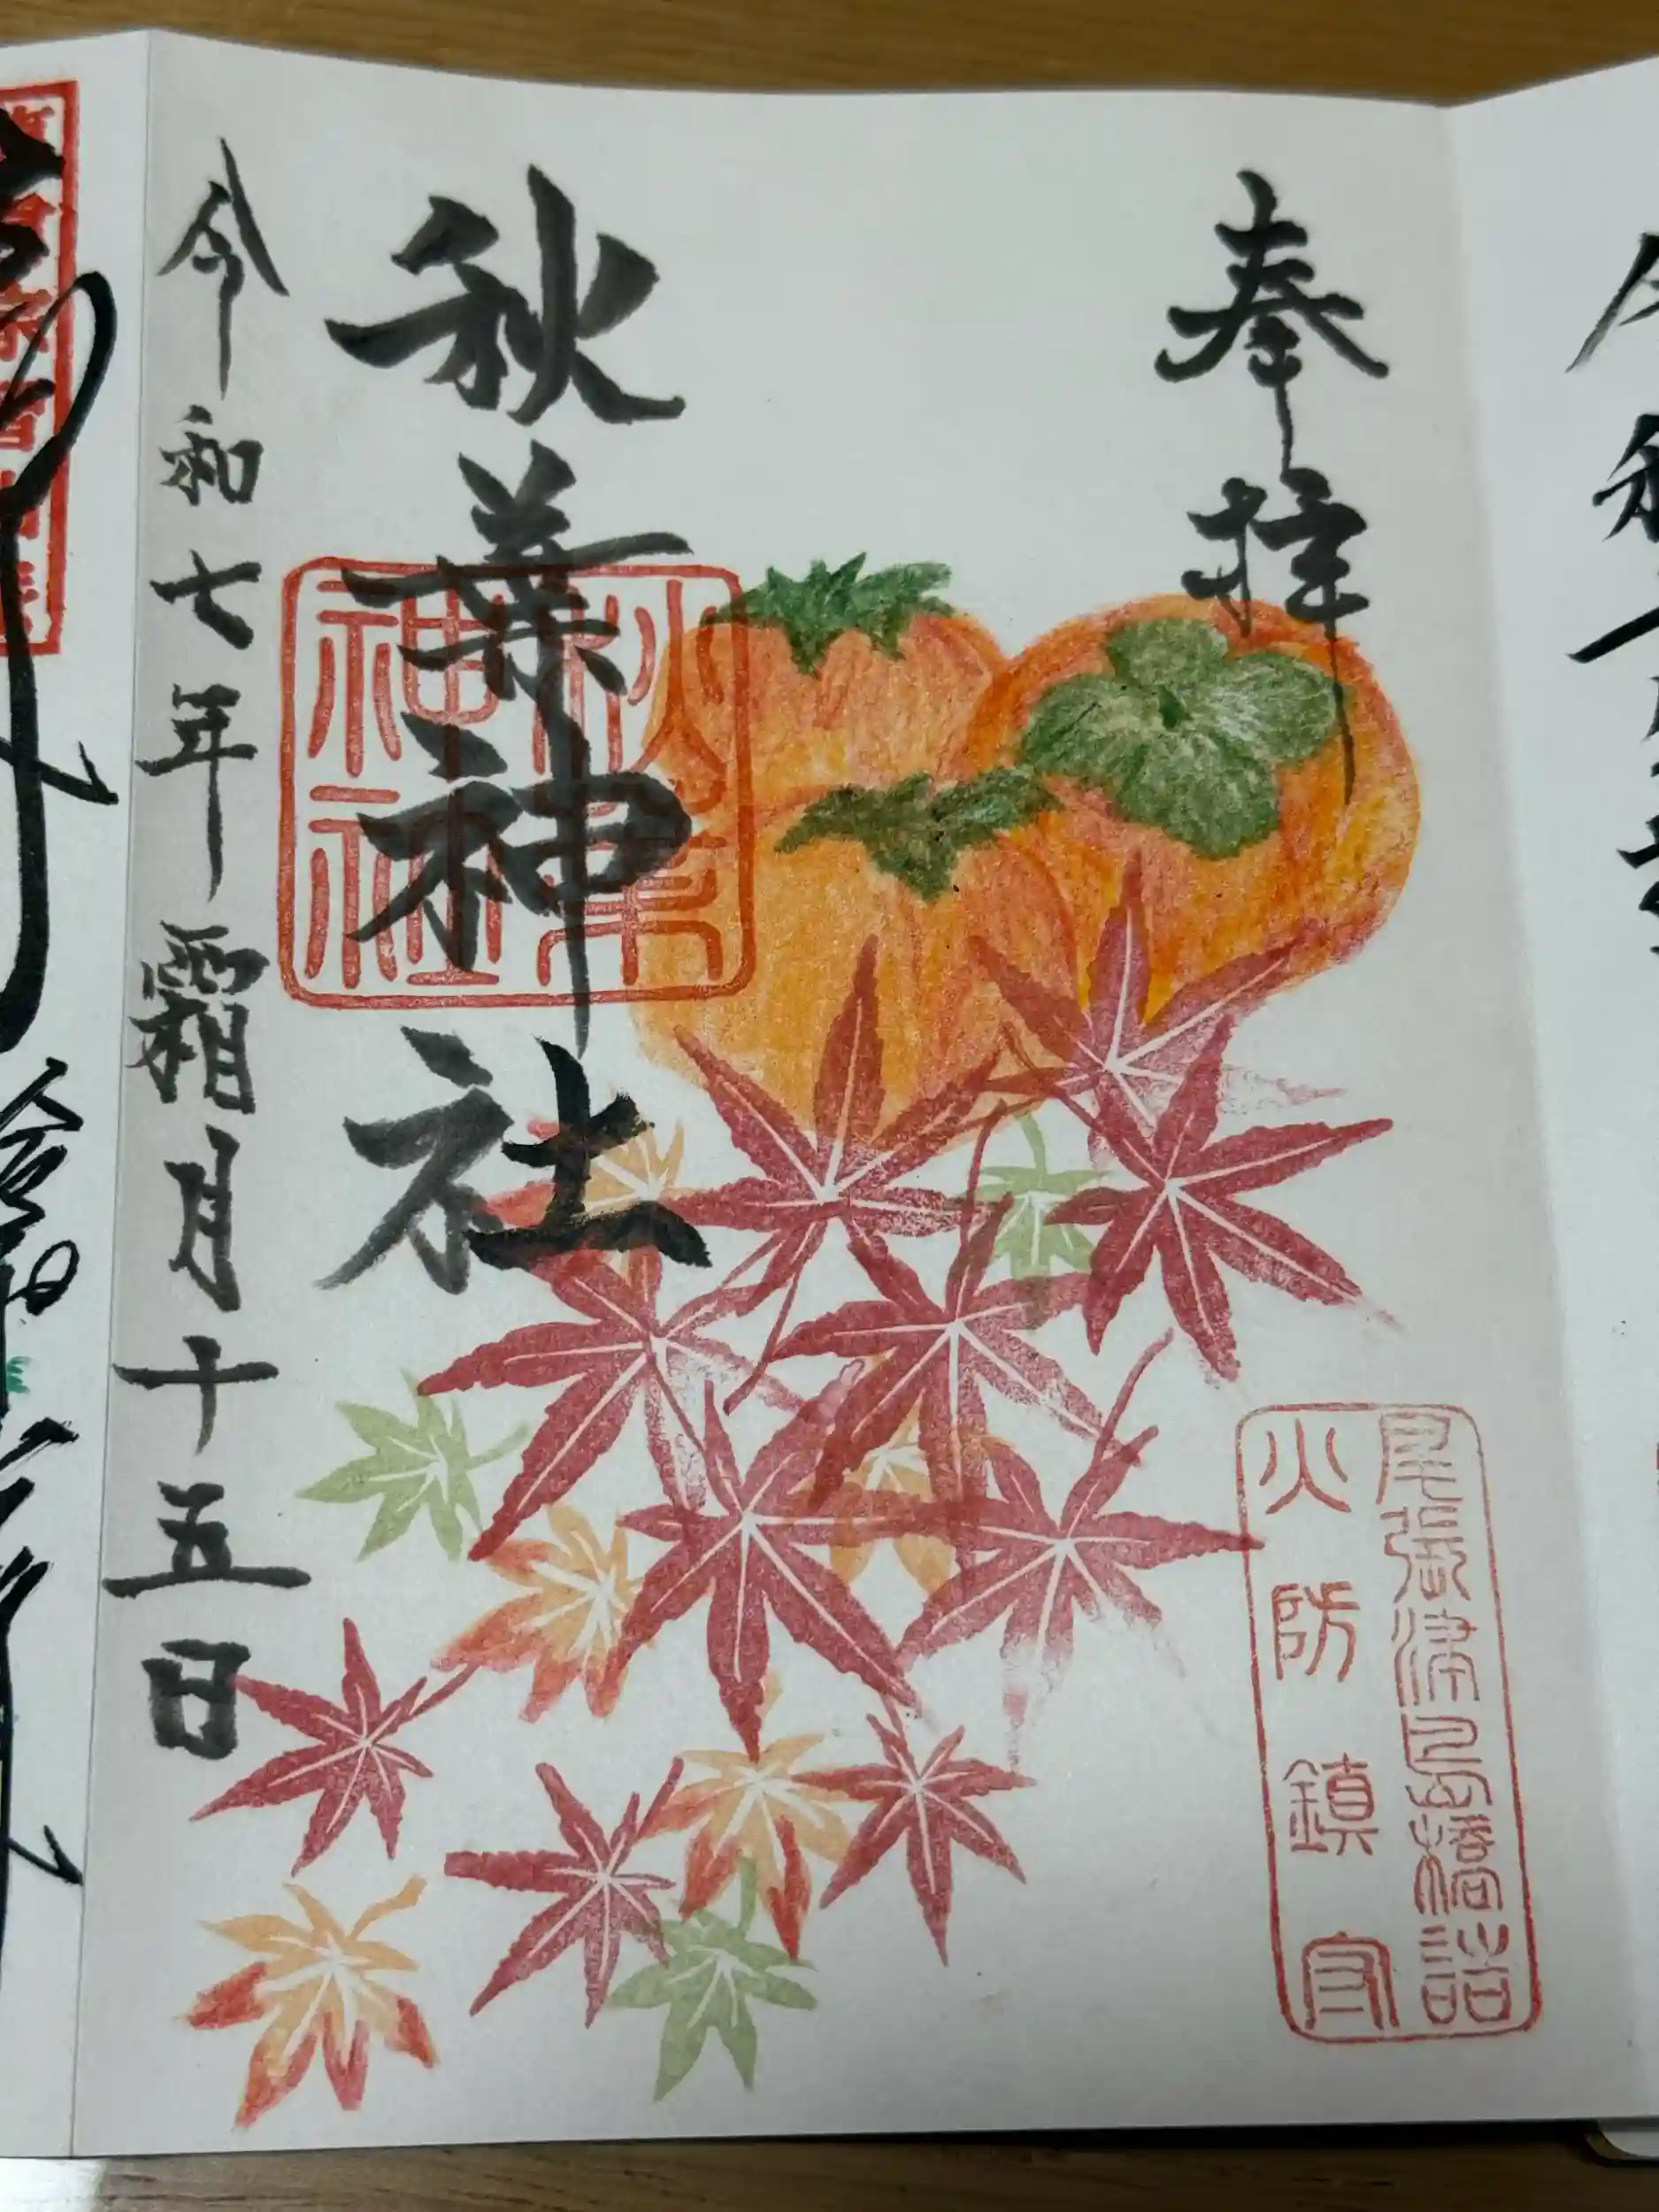 奉拝
尾張津島橋詰
火防鎮守
秋葉神社
秋葉神社
令和七年霜月十五日